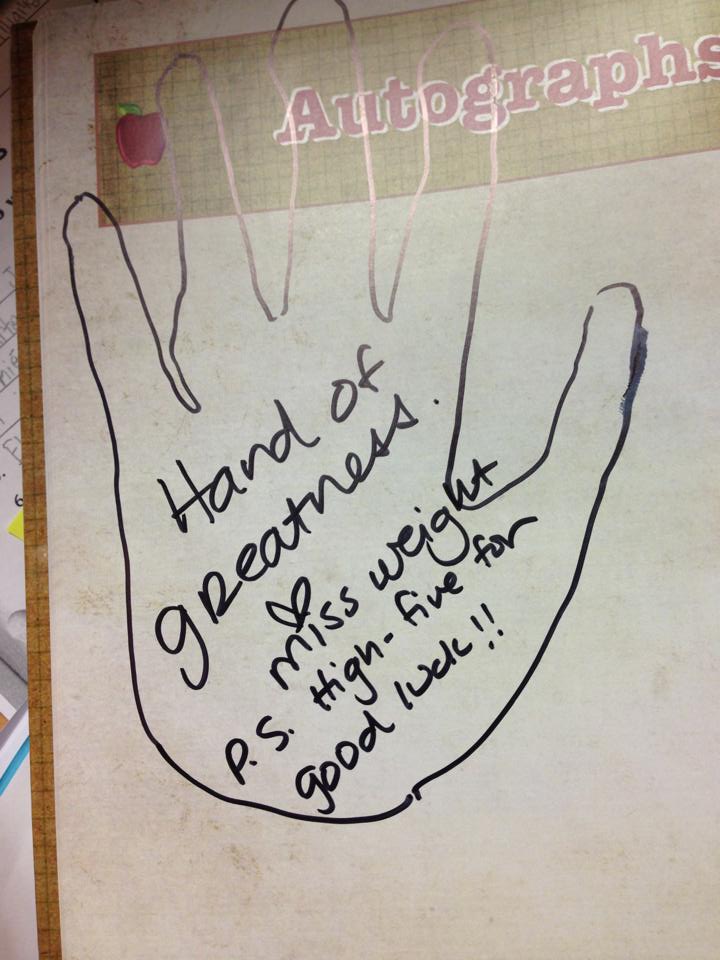 Autographs
Hand of
greatness.
♡
miss weight
P.S. High-five for
good luck!!